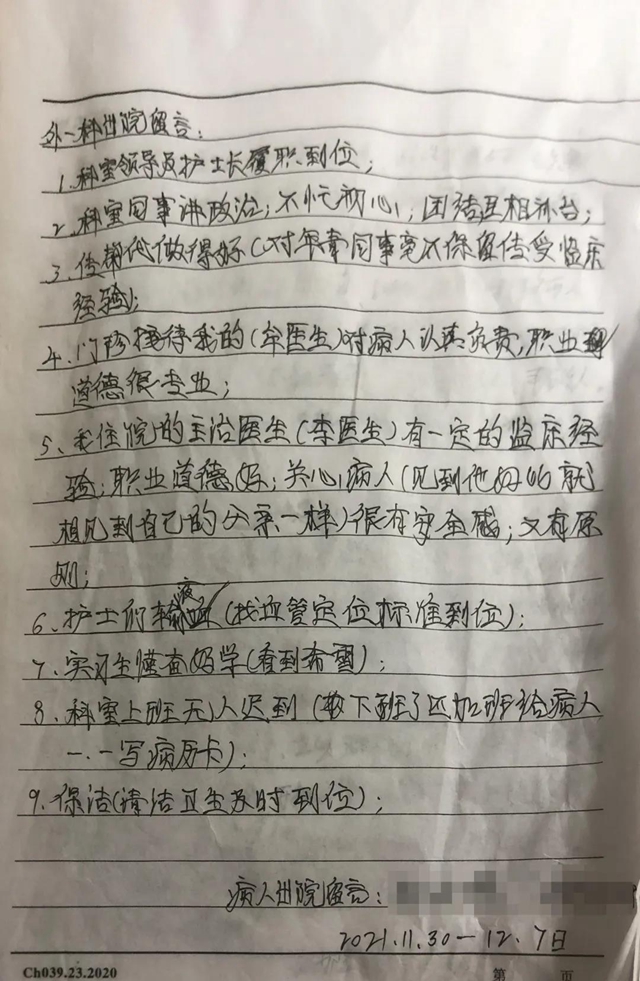 外一科出院留言：
1.科室领导及护士长履职到位；
2.科室同事讲政治；不忘初心，团结互相补台；
3.传帮代做得好（对年青同事毫不保留传受临床
经验）；
4.门诊接待我的（牟医生）对病人认真负责，职业
道德很专业；
5、我住院的主治医生（李医生）有一定的临床经
验；职业道德好；关心病人（见到他好的就
相见到自己的父亲一样）很有安全感；又有原
则；
6、护士们输液（找血管定位标准到位）；
7、实习生懂查好学（看到希望）；
8、科室上班无人迟到（散下班了还加班给病人
一.一写病历卡）；
9、保洁（清洁卫生及时到位）；
病人出院留言：
2021.11.30—12.7日
Ch039.23.2020
第 页